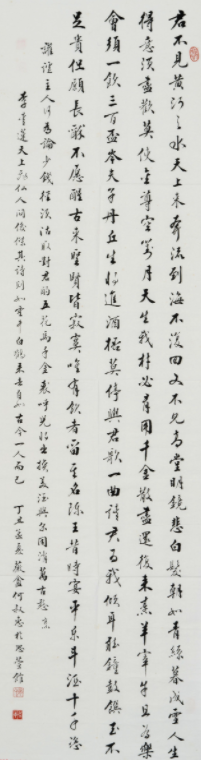 君不見黃河之水天上來奔流到海不復回又不見高堂明鏡悲白髮朝如青絲暮成雪人生
得意須盡歡莫使金尊空對月天生我材必有用千金散盡還復來烹羊宰牛且為樂
會須一飲三百盃岑夫子丹丘生將進酒莫停與君歌一曲請君為我傾耳聽鐘鼓饌玉不
足貴但願長醉不願醒古來聖賢皆寂寞唯有飲者留其名陳王昔時宴平樂斗酒十千恣
讙謔主人何為少錢徑須沽取對君酌五花馬千金裘呼兒將出換美酒與爾同消萬古愁
李青蓮天上謫仙人間俊傑其詩則如雲中白鶴來去自如古今一人而已
丁丑孟夏何叔惠於館